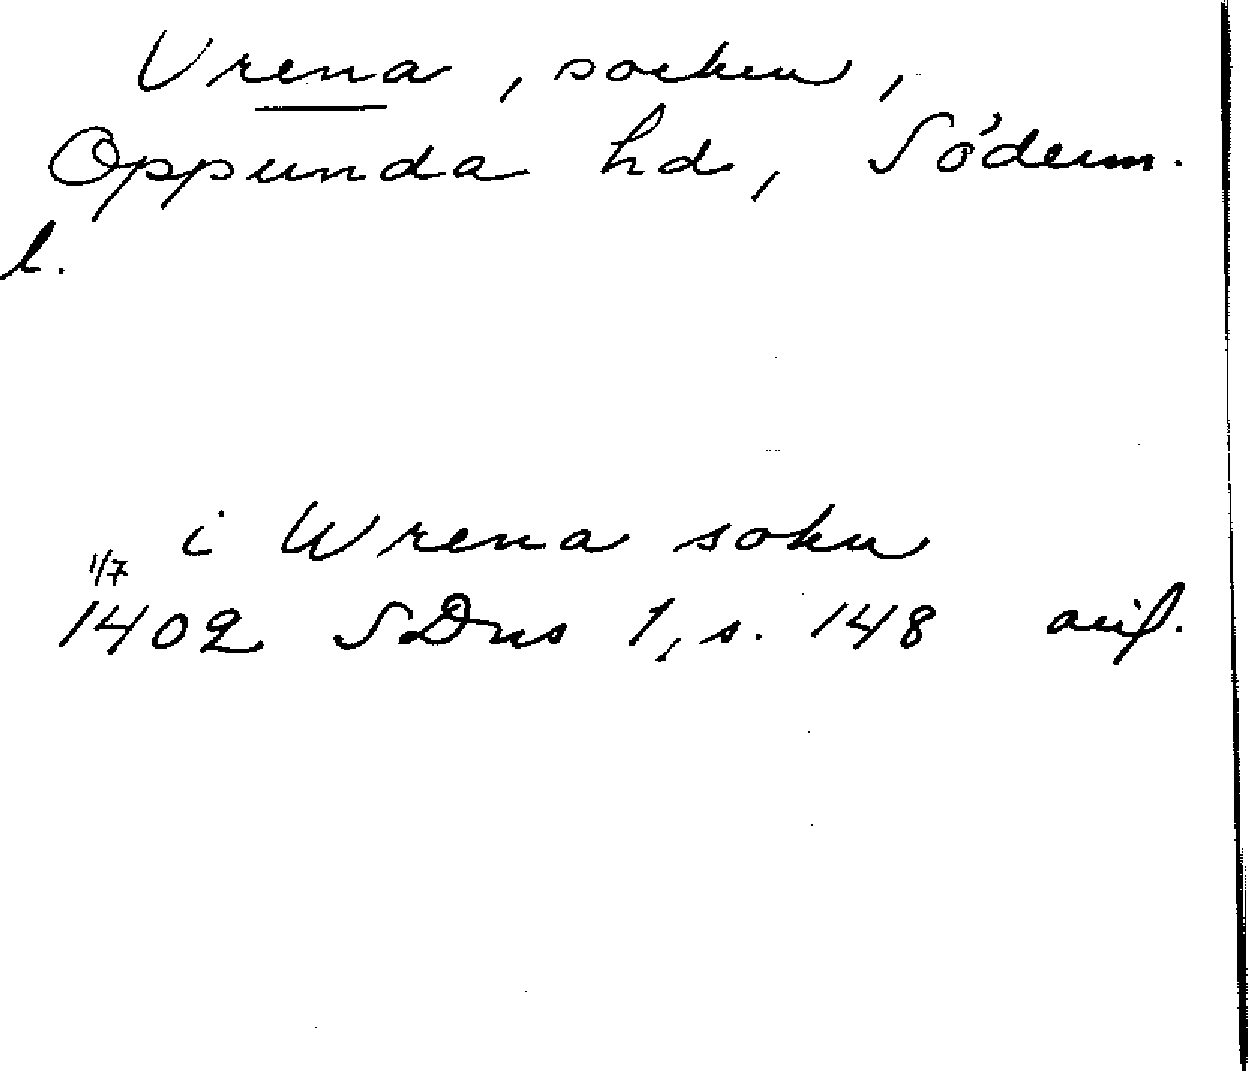 Vrena, socken,
Oppunda hd, Söderm.
l.
i Wrena sokn
1/7
1402 SDns 1, s. 148 avskr.